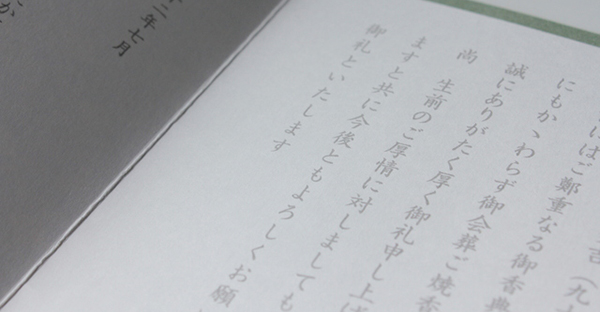 吉（九十
いはご鄭重なる御香典
にもかゝわらず御会葬ご焼香
誠にありがたく厚く御礼申し上げ
尚　生前のご厚情に対しましても
ますと共に今後ともよろしくお願
御礼といたします
二年七月
か